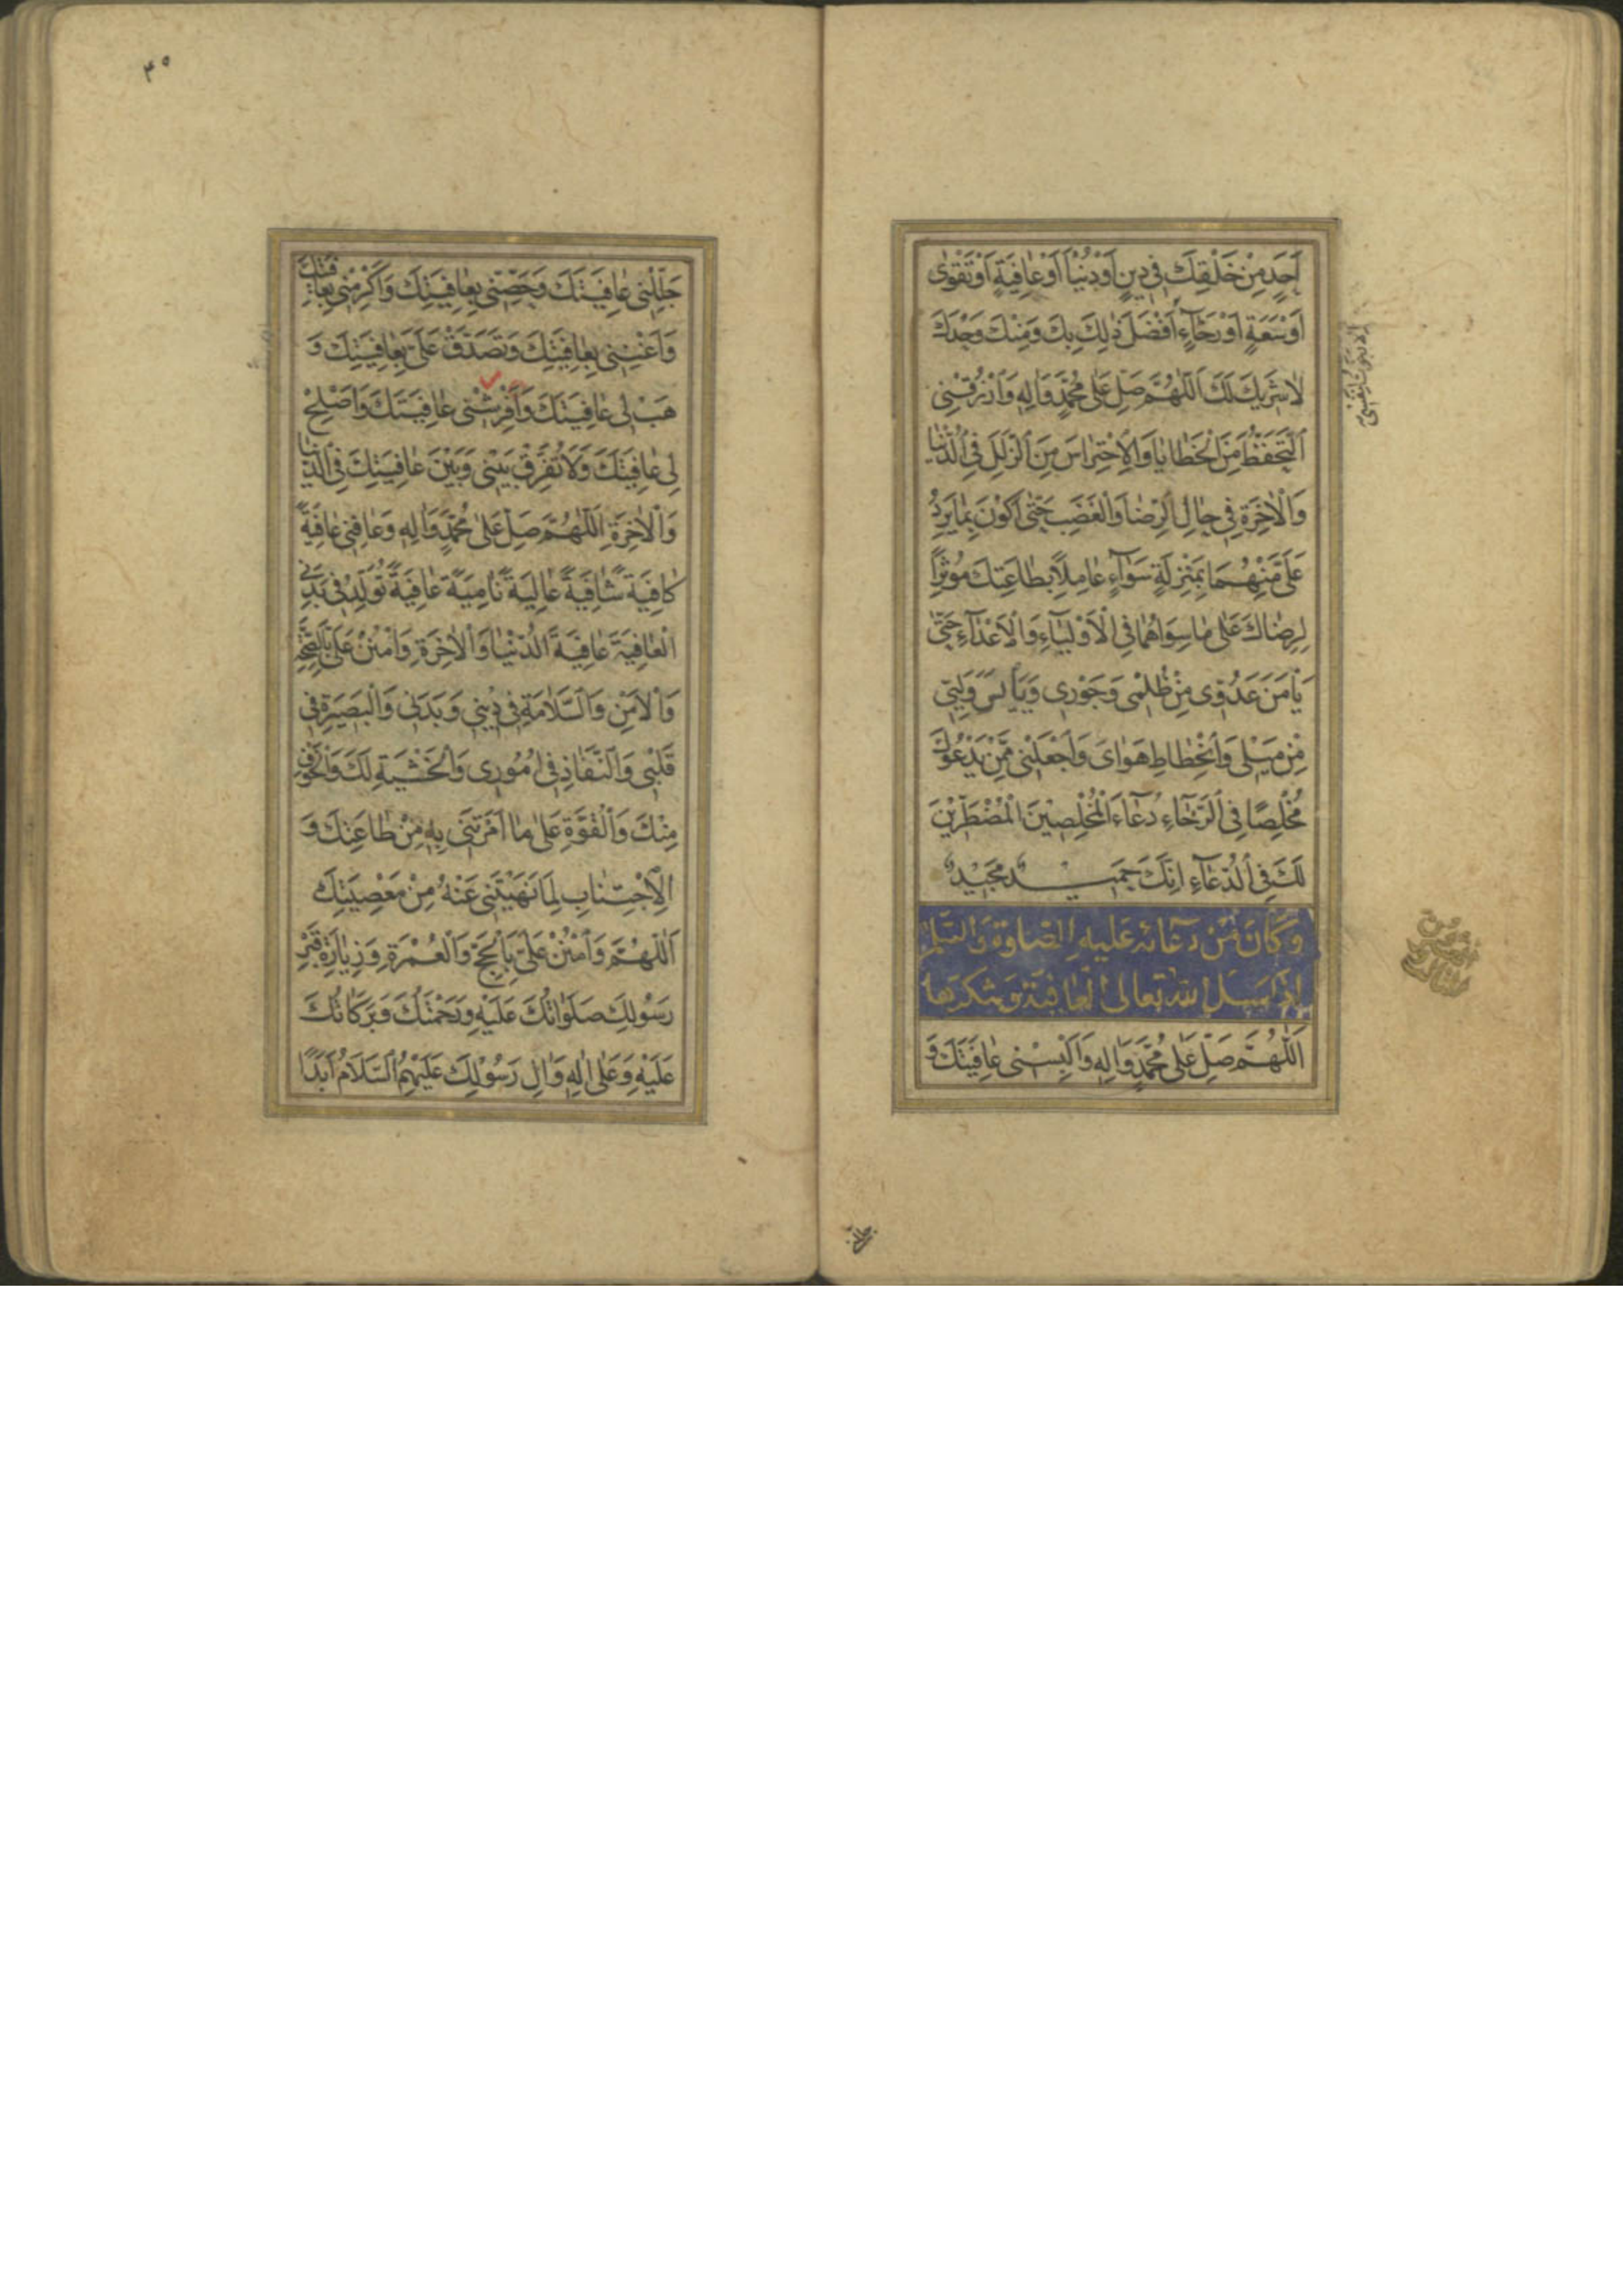 اَحَدٍ مِنْ خَلْقِكَ فِي دِينٍ اَوْ دُنْيَا اَوْ عَافِيَةٍ اَوْ تَقْوٰى
اَوْ سَعَةٍ اَوْ رَخَآءٍ اَفْضَلَ ذٰلِكَ بِكَ وَمِنْكَ وَحْدَكَ
لَا شَرِيكَ لَكَ اَللّٰهُمَّ صَلِّ عَلٰى مُحَمَّدٍ وَاٰلِهِ وَارْزُقْنِي
اَلتَّحَفُّظَ مِنَ الْخَطَايَا وَالْاِحْتِرَاسَ مِنَ الزَّلَلِ فِي الدُّنْيَا
وَالْاٰخِرَةِ فِي حَالِ الرِّضَا وَالْغَضَبِ حَتّٰى اَكُونَ بِمَا يَرِدُ
عَلَيَّ مِنْهُمَا بِمَنْزِلَةٍ سَوَآءٍ عَامِلًا بِطَاعَتِكَ مُؤْثِرًا
لِرِضَاكَ عَلٰى مَا سِوَاهُمَا فِي الْاَوْلِيَآءِ وَالْاَعْدَآءِ حَتّٰى
يَاْمَنَ عَدُوِّي مِنْ ظُلْمِي وَجَوْرِي وَيَاْيَسَ وَلِيِّي
مِنْ مَيْلِي وَانْحِطَاطِ هَوَايَ وَاجْعَلْنِي مِمَّنْ يَدْعُوكَ
مُخْلِصًا فِي الرَّخَآءِ دُعَآءَ الْمُخْلِصِينَ الْمُضْطَرِّينَ
لَكَ فِي الدُّعَآءِ اِنَّكَ حَمِيدٌ مَجِيدٌ
وَكَانَ مِنْ دُعَائِهِ عَلَيْهِ الصَّلٰوةُ وَالسَّلَامُ
اِذَا سَئَلَ اللّٰهَ تَعَالَى الْعَافِيَةَ وَشُكْرَهَا
اَللّٰهُمَّ صَلِّ عَلٰى مُحَمَّدٍ وَاٰلِهِ وَاَلْبِسْنِي عَافِيَتَكَ وَ
جَلِّلْنِي
٣٥
جَلِّلْنِي عَافِيَتَكَ وَحَصِّنِّي بِعَافِيَتِكَ وَاَكْرِمْنِي بِعَافِيَتِكَ
وَاَغْنِنِي بِعَافِيَتِكَ وَتَصَدَّقْ عَلَيَّ بِعَافِيَتِكَ وَ
هَبْ لِي عَافِيَتَكَ وَاَفْرِشْنِي عَافِيَتَكَ وَاَصْلِحْ
لِي عَافِيَتَكَ وَلَا تُفَرِّقْ بَيْنِي وَبَيْنَ عَافِيَتِكَ فِي الدُّنْيَا
وَالْاٰخِرَةِ اَللّٰهُمَّ صَلِّ عَلٰى مُحَمَّدٍ وَاٰلِهِ وَعَافِنِي عَافِيَةً
كَافِيَةً شَافِيَةً عَالِيَةً نَامِيَةً عَافِيَةً تُوَلِّدُ فِي بَدَنِي
الْعَافِيَةَ عَافِيَةَ الدُّنْيَا وَالْاٰخِرَةِ وَامْنُنْ عَلَيَّ بِالصِّحَّةِ
وَالْاَمْنِ وَالسَّلَامَةِ فِي دِينِي وَبَدَنِي وَالْبَصِيرَةِ فِي
قَلْبِي وَالنَّفَاذِ فِي اُمُورِي وَالْخَشْيَةِ لَكَ وَالْخَوْفِ
مِنْكَ وَالْقُوَّةِ عَلٰى مَا اَمَرْتَنِي بِهِ مِنْ طَاعَتِكَ وَ
الْاِجْتِنَابِ لِمَا نَهَيْتَنِي عَنْهُ مِنْ مَعْصِيَتِكَ
اَللّٰهُمَّ وَامْنُنْ عَلَيَّ بِالْحَجِّ وَالْعُمْرَةِ وَزِيَارَةِ قَبْرِ
رَسُولِكَ صَلَوَاتُكَ عَلَيْهِ وَرَحْمَتُكَ وَبَرَكَاتُكَ
عَلَيْهِ وَعَلٰى اٰلِهِ وَاٰلِ رَسُولِكَ عَلَيْهِمُ السَّلَامُ اَبَدًا